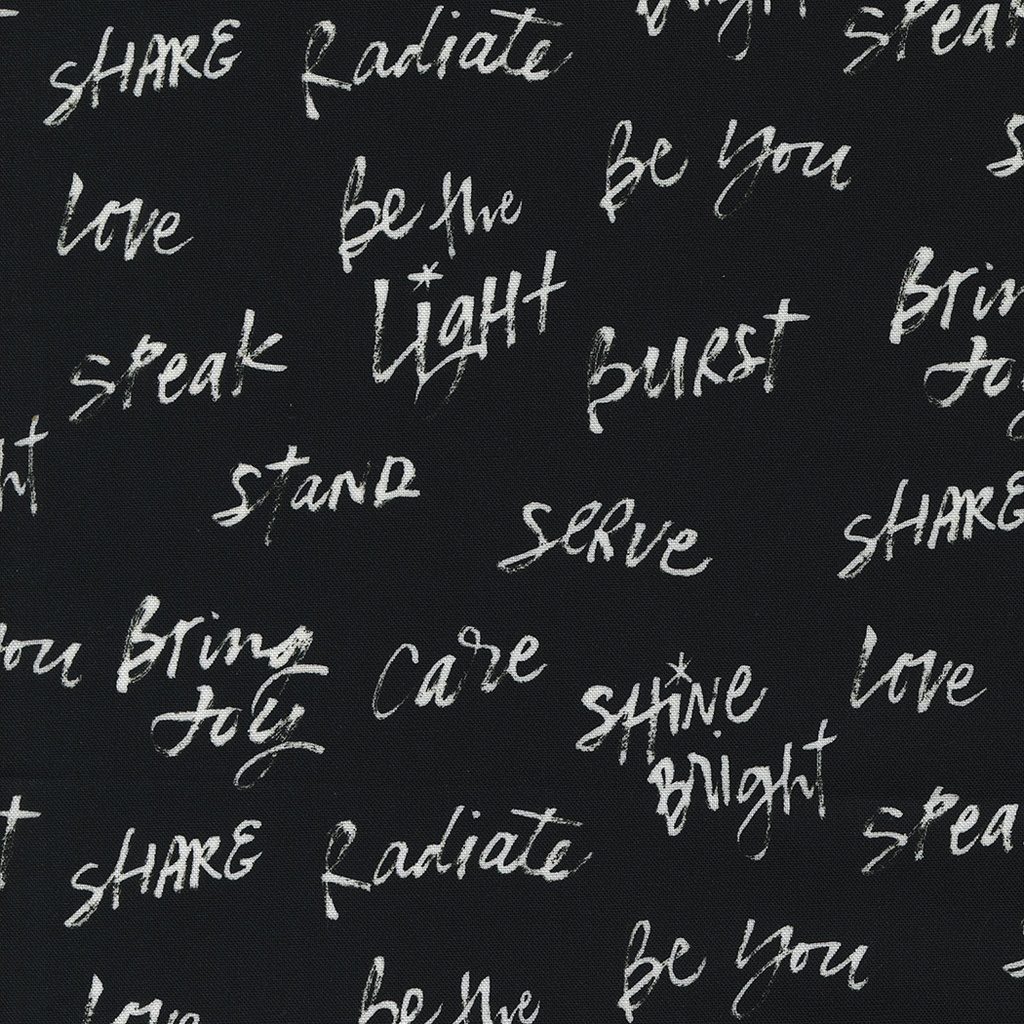 Bright
SHARE Radiate Speak
Be You
Love Be the
Light
Bring
Speak BURST Joy
Light
STAND
SHARE
SERVE
You Bring Care
Love
Joy SHINE
BRight
SHARE Radiate Speak
Be You
Love Be the